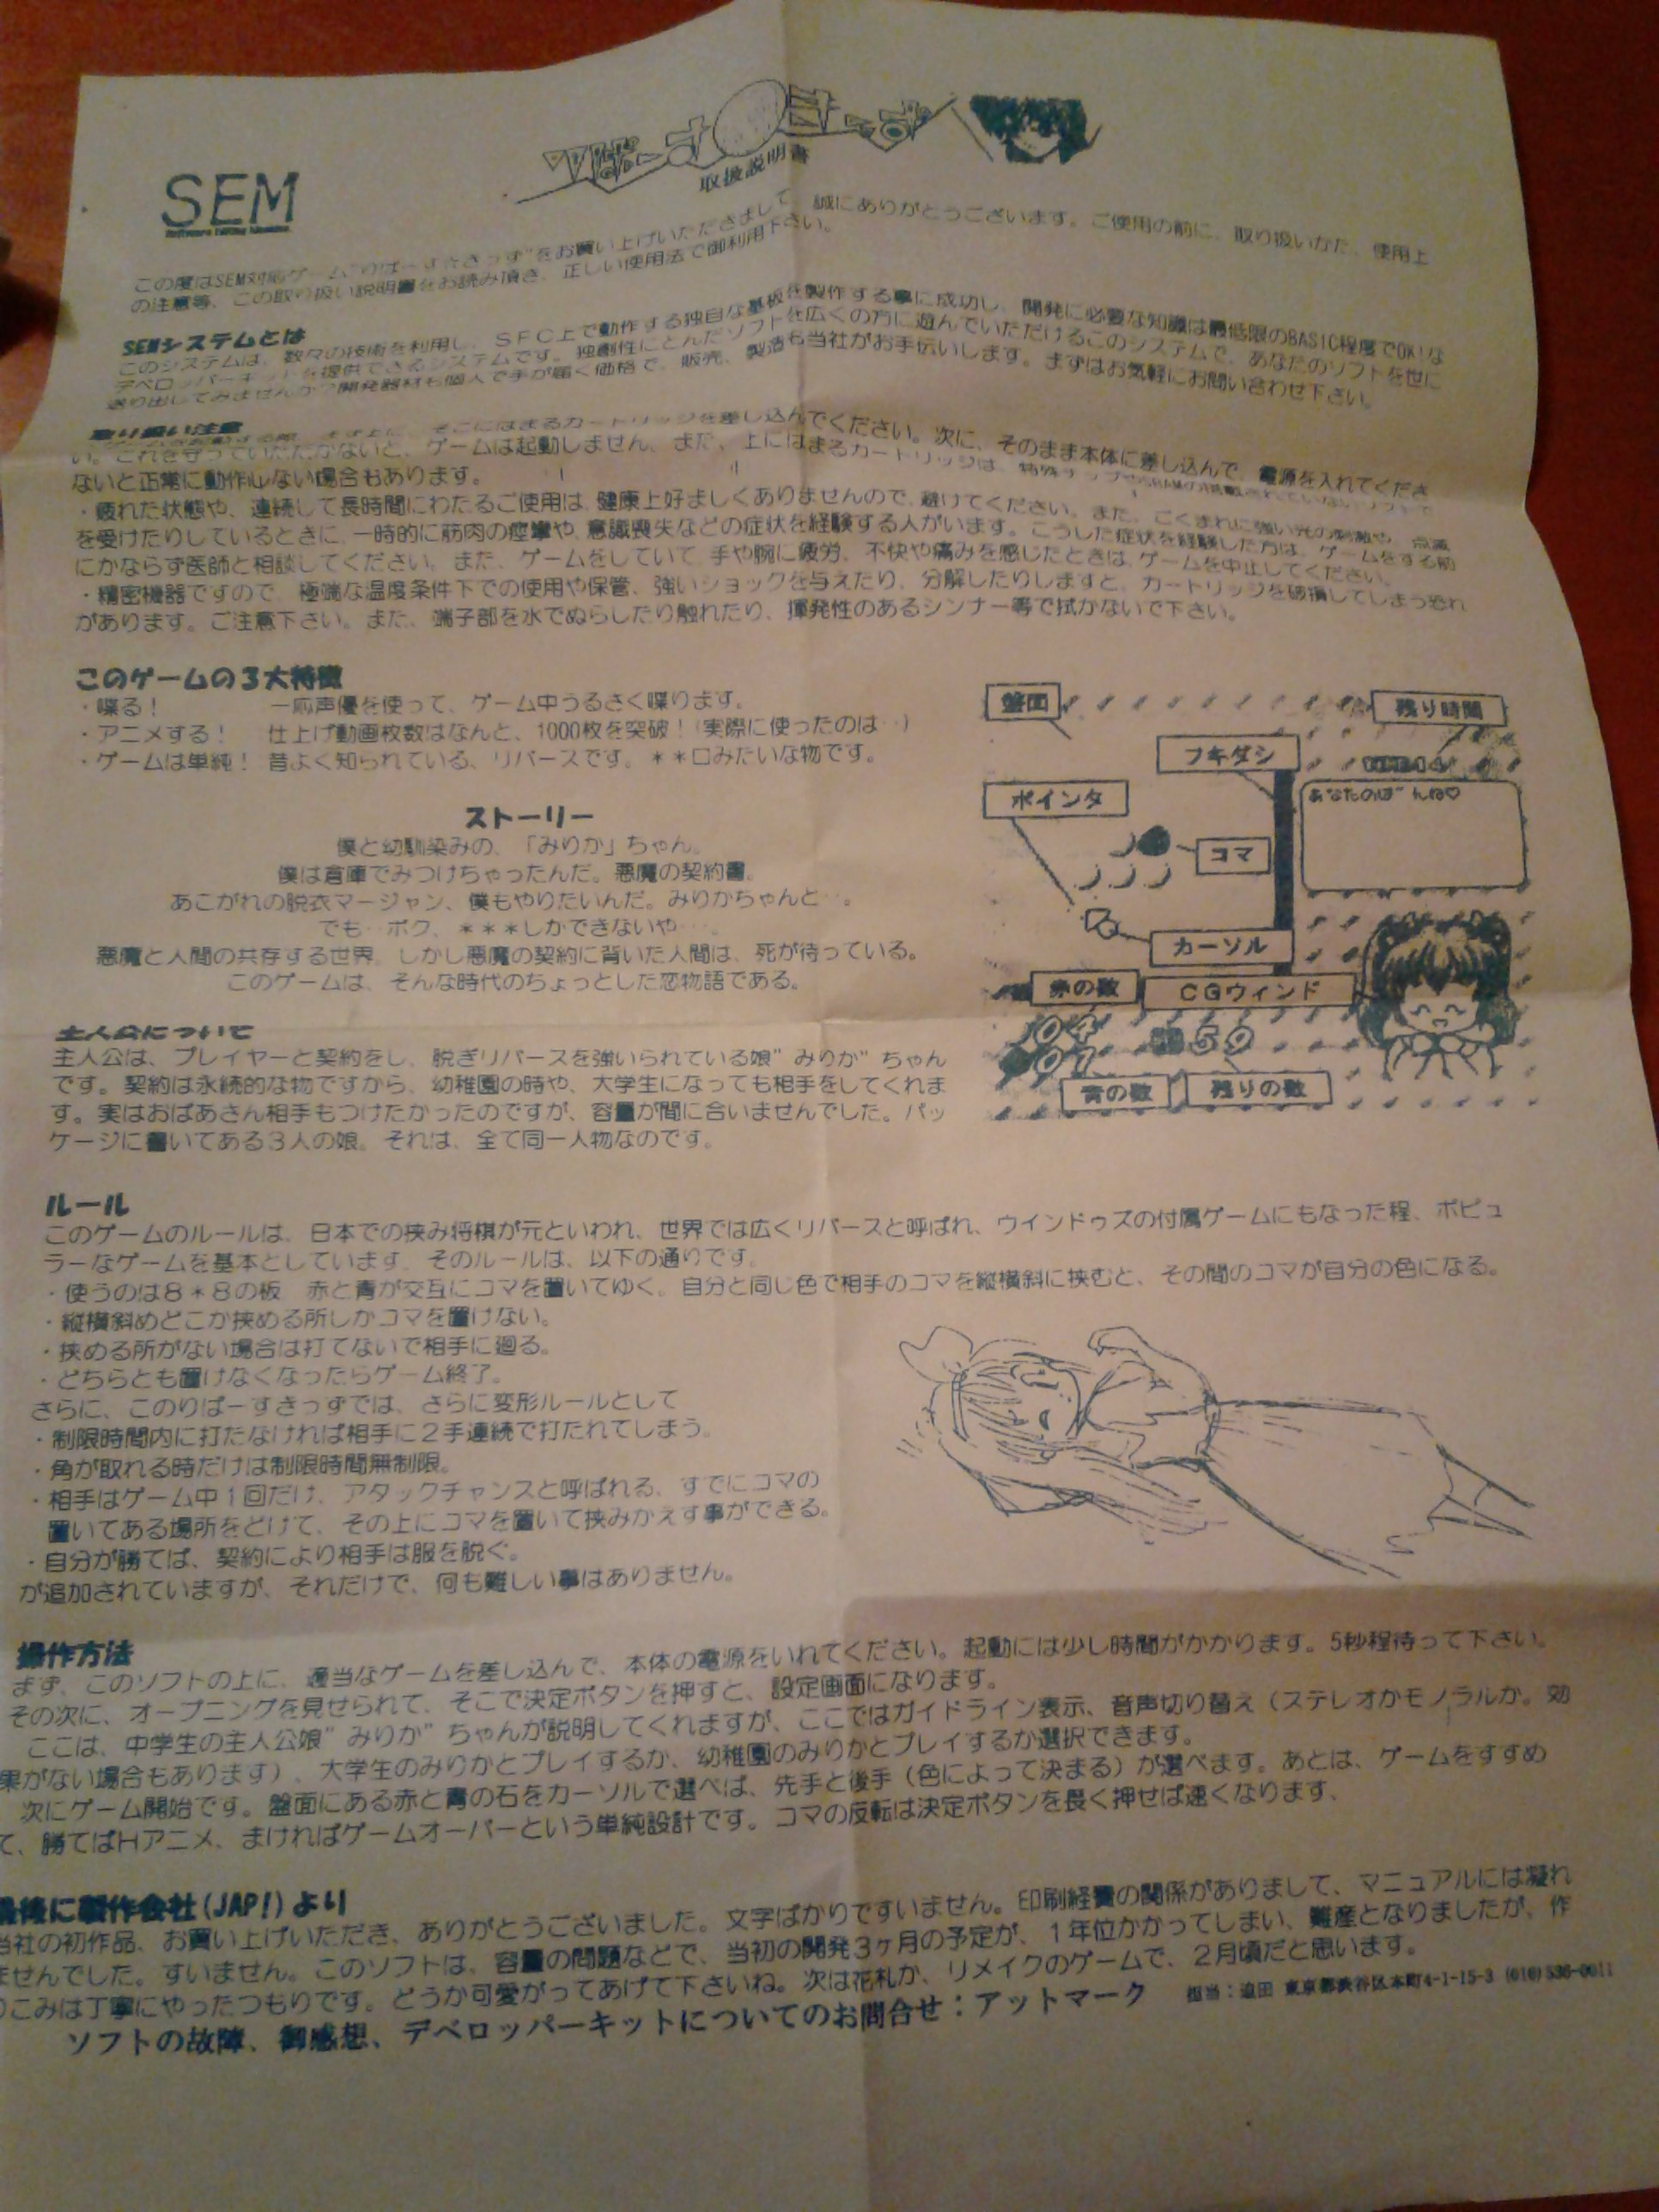 SEM
りばーす
きっず
取扱説明書
この度はSEM対応ゲーム"りばーすきっず"をお買い上げいただきまして、誠にありがとうございます。ご使用の前に、取り扱いかた、使用上
の注意等、この取り扱い説明書をお読み頂き、正しい使用法で御利用下さい。
SEMシステムとは
このシステムは、数々の技術を利用し、SFC上で動作する独自な基板を製作する事に成功し、開発に必要な知識は最低限のBASIC程度でOK!な
デベロッパーキットを提供できるシステムです。独創性にとんだソフトを広くの方に遊んでいただけるこのシステムで、あなたのソフトを世に
送り出してみませんか?開発器材も個人で手が届く価格で、販売、製造も当社がお手伝いします。まずはお気軽にお問い合わせ下さい。
取り扱い注意
そこにはまるカートリッジを差し込んでください。次に、そのまま本体に差し込んで、電源を入れてくださ
い。これを守っていただかないと、ゲームは起動しません、また、上にはまるカートリッジは、
ないと正常に動作しない場合もあります。
・疲れた状態や、連続して長時間にわたるご使用は、健康上好ましくありませんので、避けてください。また、ごくまれに強い光の刺激や、点滅
を受けたりしているときに、一時的に筋肉の痙攣や、意識喪失などの症状を経験する人がいます。こうした症状を経験した方は、ゲームをする前
にかならず医師と相談してください。また、ゲームをしていて、手や腕に疲労、不快や痛みを感じたときは、ゲームを中止してください。
・精密機器ですので、極端な温度条件下での使用や保管、強いショックを与えたり、分解したりしますと、カートリッジを破損してしまう恐れ
があります。ご注意下さい。また、端子部を水でぬらしたり触れたり、揮発性のあるシンナー等で拭かないで下さい。
このゲームの3大特徴
・喋る! 一応声優を使って、ゲーム中うるさく喋ります。
・アニメする! 仕上げ動画枚数はなんと、1000枚を突破!(実際に使ったのは‥)
・ゲームは単純! 昔よく知られている、リバースです。**ロみたいな物です。
盤面
残り時間
フキダシ
あなたのばんね♡
ポインタ
コマ
カーソル
赤の数
CGウィンド
04
59
01
青の数
残りの数
ストーリー
僕と幼馴染みの、「みりか」ちゃん。
僕は倉庫でみつけちゃったんだ。悪魔の契約書。
あこがれの脱衣マージャン、僕もやりたいんだ。みりかちゃんと‥。
でも‥ボク、***しかできないや‥‥。
悪魔と人間の共存する世界。しかし悪魔の契約に背いた人間は、死が待っている。
このゲームは、そんな時代のちょっとした恋物語である。
主人公について
主人公は、プレイヤーと契約をし、脱ぎリバースを強いられている娘"みりか"ちゃん
です。契約は永続的な物ですから、幼稚園の時や、大学生になっても相手をしてくれま
す。実はおばあさん相手もつけたかったのですが、容量が間に合いませんでした。パッ
ケージに書いてある3人の娘。それは、全て同一人物なのです。
ルール
このゲームのルールは、日本での挟み将棋が元といわれ、世界では広くリバースと呼ばれ、ウインドゥズの付属ゲームにもなった程、ポピュ
ラーなゲームを基本としています。そのルールは、以下の通りです。
・使うのは8*8の板 赤と青が交互にコマを置いてゆく。自分と同じ色で相手のコマを縦横斜に挟むと、その間のコマが自分の色になる。
・縦横斜めどこか挟める所しかコマを置けない。
・挟める所がない場合は打てないで相手に廻る。
・どちらとも置けなくなったらゲーム終了。
さらに、このりばーすきっずでは、さらに変形ルールとして
・制限時間内に打たなければ相手に2手連続で打たれてしまう。
・角が取れる時だけは制限時間無制限。
・相手はゲーム中1回だけ、アタックチャンスと呼ばれる、すでにコマの
置いてある場所をどけて、その上にコマを置いて挟みかえす事ができる。
・自分が勝てば、契約により相手は服を脱ぐ。
が追加されていますが、それだけで、何も難しい事はありません。
操作方法
まず、このソフトの上に、適当なゲームを差し込んで、本体の電源をいれてください。起動には少し時間がかかります。5秒程待って下さい。
その次に、オープニングを見せられて、そこで決定ボタンを押すと、設定画面になります。
ここは、中学生の主人公娘"みりか"ちゃんが説明してくれますが、ここではガイドライン表示、音声切り替え(ステレオかモノラルか。効
果がない場合もあります)、大学生のみりかとプレイするか、幼稚園のみりかとプレイするか選択できます。
次にゲーム開始です。盤面にある赤と青の石をカーソルで選べば、先手と後手(色によって決まる)が選べます。あとは、ゲームをすすめ
て、勝てばHアニメ、まければゲームオーバーという単純設計です。コマの反転は決定ボタンを長く押せば速くなります、
最後に製作会社(JAP!)より
当社の初作品、お買い上げいただき、ありがとうございました。文字ばかりですいません。印刷経費の関係がありまして、マニュアルには凝れ
ませんでした。すいません。このソフトは、容量の問題などで、当初の開発3ヶ月の予定が、1年位かかってしまい、難産となりましたが、作
りこみは丁寧にやったつもりです。どうか可愛がってあげて下さいね。次は花札か、リメイクのゲームで、2月頃だと思います。
ソフトの故障、御感想、デベロッパーキットについてのお問合せ:アットマーク 担当:迫田 東京都渋谷区本町4-1-15-3 (010)536-0011